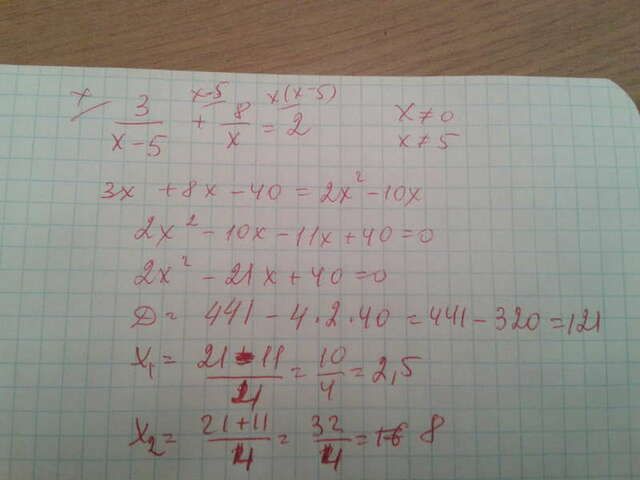 x x-5 x(x-5)
3/(x-5) + 8/x = 2 x≠0
x≠5
3x + 8x - 40 = 2x² - 10x
2x² - 10x - 11x + 40 = 0
2x² - 21x + 40 = 0
D = 441 - 4·2·40 = 441 - 320 = 121
x₁ = (21-11)/4 = 10/4 = 2,5
x₂ = (21+11)/4 = 32/4 = 8